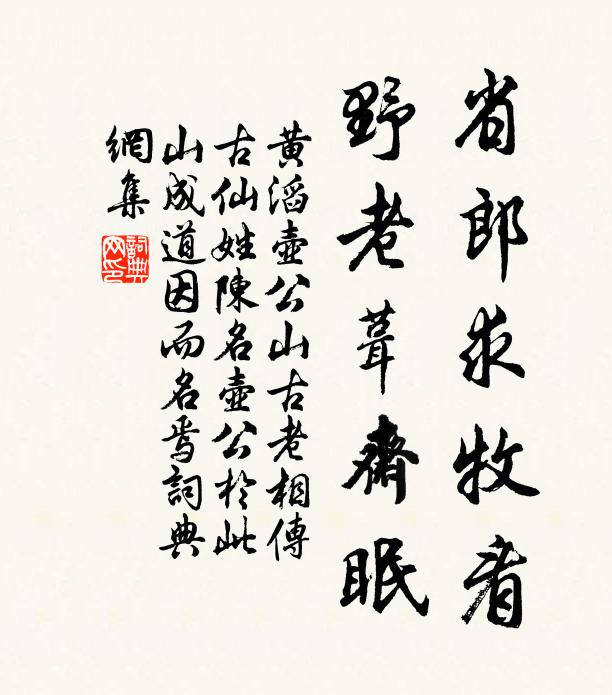 省郎求牧看
野老葺齋眠
黃滔壺公山古老相傳
古仙姓陳名壺公於此
山成道因而名焉詞典
網集
詞典
网印